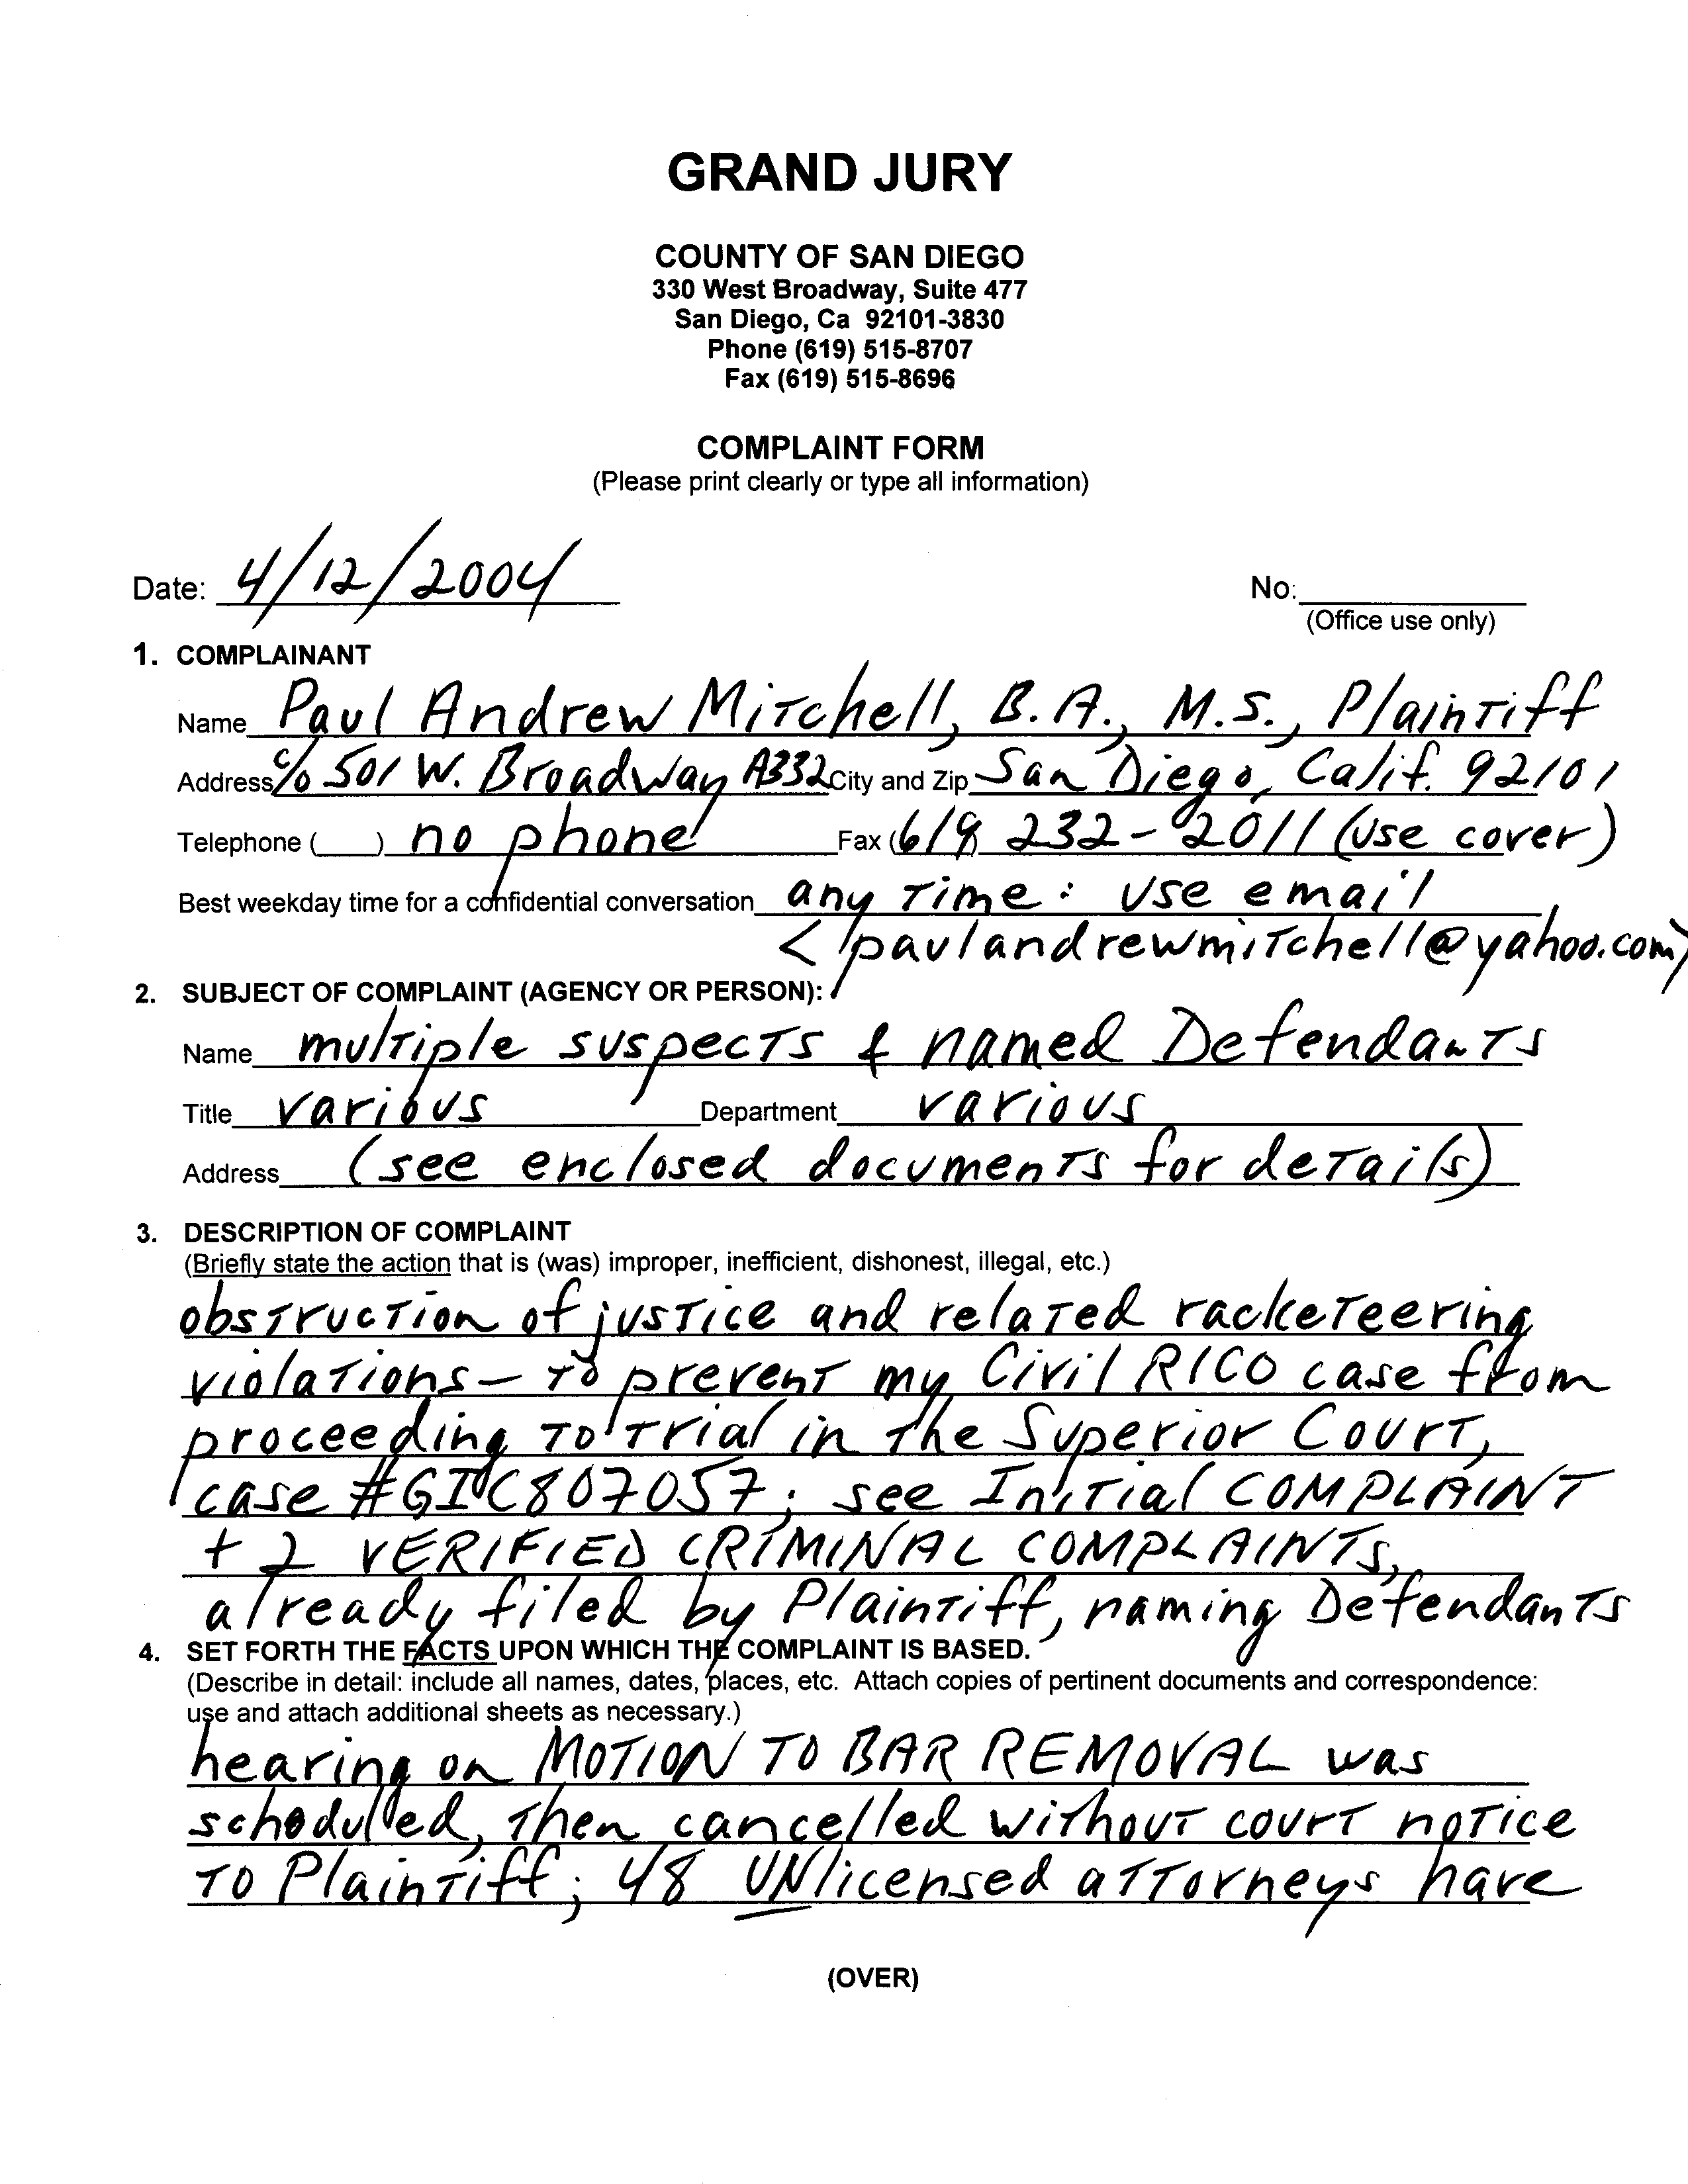 GRAND JURY
COUNTY OF SAN DIEGO
330 West Broadway, Suite 477
San Diego, Ca 92101-3830
Phone (619) 515-8707
Fax (619) 515-8696
COMPLAINT FORM
(Please print clearly or type all information)
Date: 4/12/2004 No:
(Office use only)
1. COMPLAINANT
Name Paul Andrew Mitchell, B.A., M.S., Plaintiff
Address c/o 501 W. Broadway A332 City and Zip San Diego, Calif. 92101
Telephone ( ) no phone Fax (619) 232-2011 (use cover)
Best weekday time for a confidential conversation any time: use email
<paulandrewmitchell@yahoo.com>
2. SUBJECT OF COMPLAINT (AGENCY OR PERSON):
Name multiple suspects & named Defendants
Title various Department various
Address (see enclosed documents for details)
3. DESCRIPTION OF COMPLAINT
(Briefly state the action that is (was) improper, inefficient, dishonest, illegal, etc.)
obstruction of justice and related racketeering
violations — to prevent my Civil RICO case from
proceeding to trial in the Superior Court,
case #GIC807057; see Initial COMPLAINT
+ 2 VERIFIED CRIMINAL COMPLAINTS,
already filed by Plaintiff, naming Defendants
4. SET FORTH THE FACTS UPON WHICH THE COMPLAINT IS BASED.
(Describe in detail: include all names, dates, places, etc. Attach copies of pertinent documents and correspondence:
use and attach additional sheets as necessary.)
hearing on MOTION TO BAR REMOVAL was
scheduled, then cancelled without court notice
to Plaintiff; 48 UNlicensed attorneys have
(OVER)